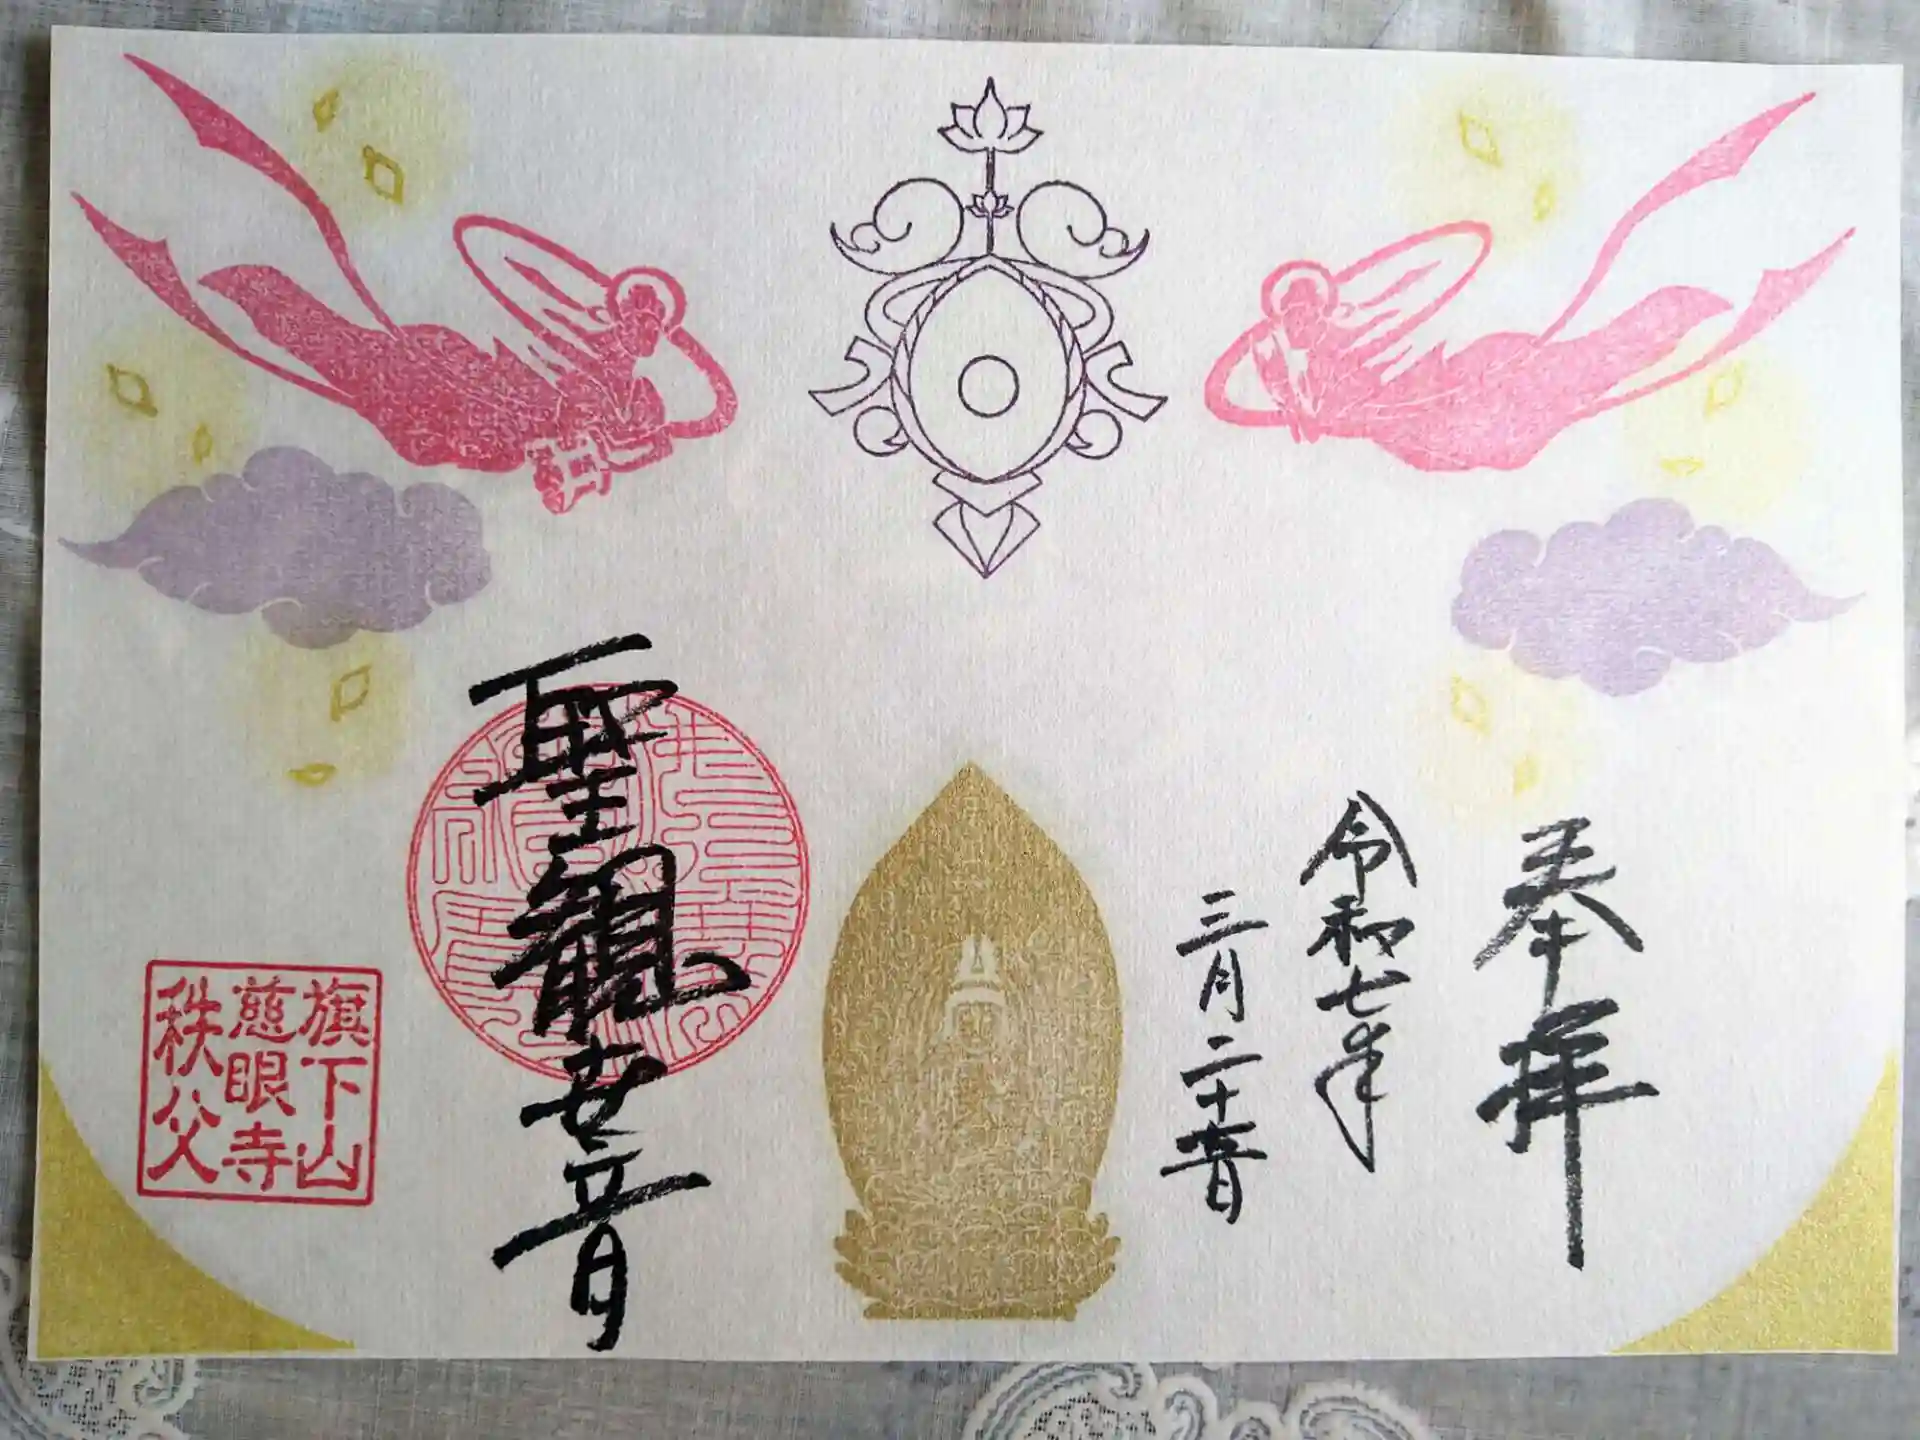 奉拝
令和七年
三月二十六日
聖觀世音
旗下山
慈眼寺
秩父